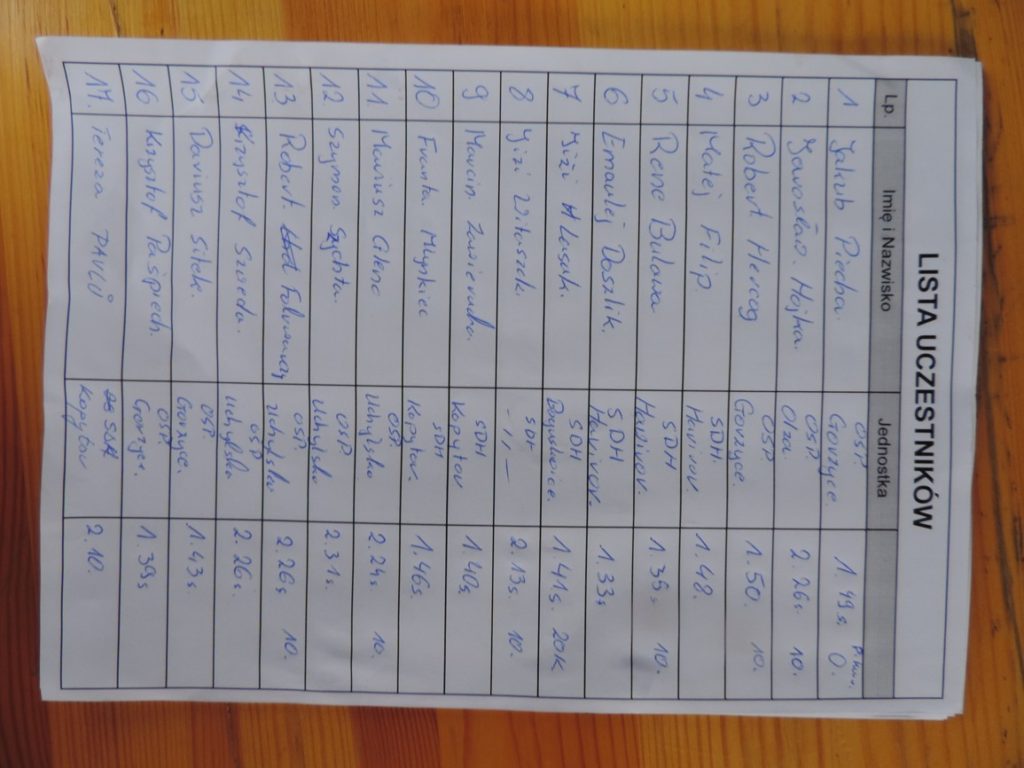 LISTA UCZESTNIKÓW
Lp. Imię i Nazwisko Jednostka
1 Jakub Piecha. OSP. Gorzyce. 1.49s. 0.
2 Jarosław. Hojka. OSP. Olza. 2.26s. 10.
3 Robert Herczg OSP Gorzyce. 1.50. 10.
4 Matej Filip. SDH. Havirov. 1.48.
5 Rene Bulawa SDH Havirov. 1.35s 10.
6 Emanlej Doszlik. SDH Havirov. 1.33s
7 Jiži Hlosak. SDH 1.41s. 20k
8 Jiži Witosek. SDH -11- 2.13s. 10.
9 Marcin SDH Kopytov 1.40s
10 Franta Myskiec SDH Kopytov. 1.46s.
11 Mariusz Glenc OSP. Uchylsko 2.24s. 10.
12 Szymon Szychta. OSP Uchylsko 2.31s.
13 Robert OSP. Uchylsko 2.26s 10.
14 Krzysztof Szweda. OSP Uchylsko 2.26s.
15 Dariusz Sitek. OSP. Gorzyce. 1.43s.
16 Krzysztof Pośpiech. OSP. Gorzyce. 1.39s
17. Tereza PAVLŮ SDH Kopytov 2.10.